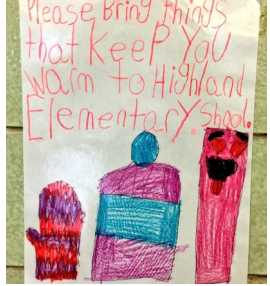 Please Bring things
that KeeP You
warm to Highland
Elementary. Shool.